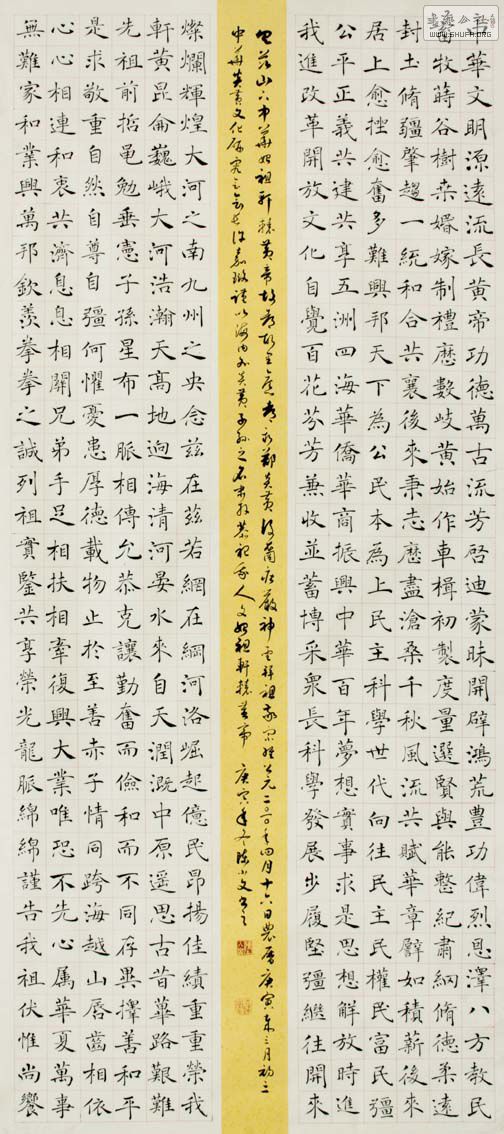 書法公社
WWW.SHUFA.ORG
中華文明源遠流長黃帝功德萬古流芳啓迪蒙昧開辟鴻荒豊功偉澤八方教民
畜牧蒔谷樹桒婚嫁制禮曆數岐黃始作車楫初製度量選賢與能整紀肅綱脩德柔遠
封土脩疆肇超一統和合共襄後來秉志歷盡滄桑千秋風流共賦華章譬如積薪後來
居上愈挫愈奮多難興邦天下為公民本為上民主科學世代向往民主民權民富民彊
公平正義共建共享五洲四海華僑華商振興中華百年夢想實事求是思想解放時進
我進改革開放文化自覺百花芬芳兼收並蓄博采衆長科學發展步履堅彊繼往開來
中華始祖軒轅黃帝 公元二〇一〇年四月十六日農曆庚寅年三月初三
中華炎黃文化研究會會長許嘉璐謹以海內外炎黃子孫之名恭祀我人文始祖軒轅黃帝 庚寅年冬陳小文書
燦爛輝煌大河之南九州之央念茲在茲若網在綱河洛崛起億民昂揚佳績重重榮我
軒黃昆侖巍峨大河浩瀚天高地迥海清河晏水來自天潤溉中原遥思古昔蓽路艱難
先祖前哲黽勉垂憲子孫星布一脈相傳允恭克讓勤奮而儉和而不同存異擇善和平
是求敬重自然自尊自彊何懼憂患厚德載物止於至善赤子情同跨海越山唇齒相依
心心相連和衷共濟息息相關兄弟手足相扶相牽復興大業唯恐不先心属華夏萬事
無難家和業興萬邦欽羨拳拳之誠列祖實鑒共享榮光龍脈綿綿謹告我祖伏惟尚饗